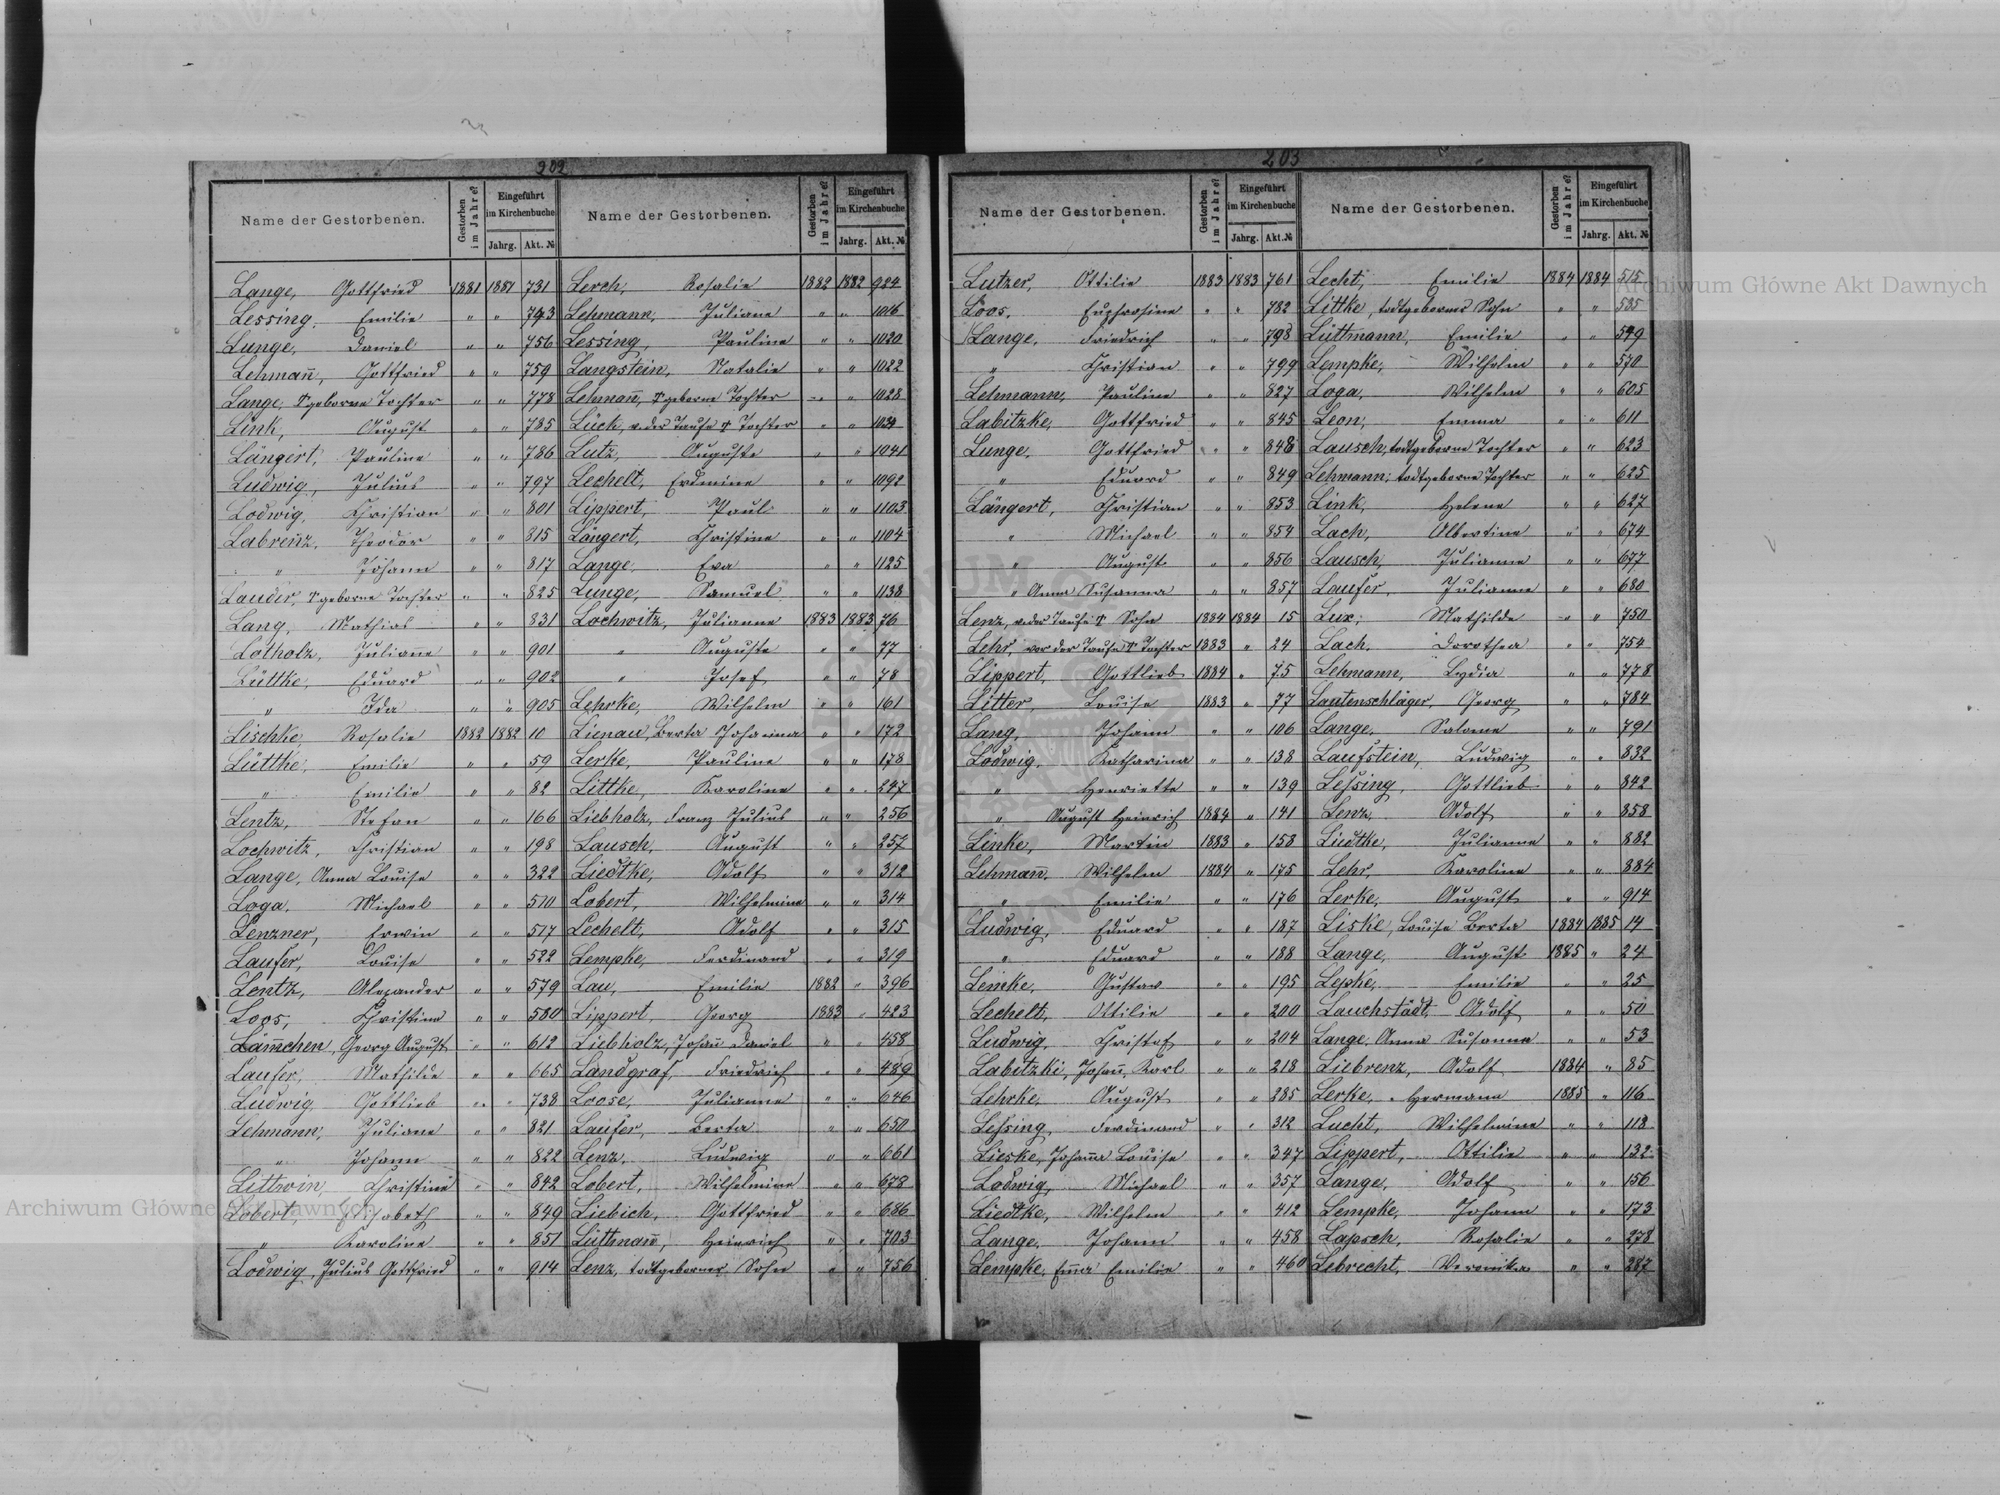 202
Name der Gestorbenen.
Gestorben im Jahre?
Eingeführt im Kirchenbuche
Jahrg.
Akt. №
Name der Gestorbenen.
Gestorben im Jahre?
Eingeführt im Kirchenbuche
Jahrg.
Akt. №
Lange, Gottfried 1881 1881 731
Lessing, Emilie " " 743
Lunge, Daniel " " 756
Lehman̄, Gottfried " " 759
Lange, †geborne Tochter " " 778
Link, August " " 785
Längert, Pauline " " 786
Ludwig, Julius " " 797
Lodwig, Christian " " 801
Labrenz, Theodor " " 815
" Johann " " 817
Lauder, †geborne Tochter " " 825
Lang, Mathias " " 831
Lotholz, Julian̄e " " 901
Lüttke, Eduard " " 902
" Ida " " 905
Lischke, Rosalie 1882 1882 10
Lüttke, Emilie " " 59
" Emilie " " 82
Lentz, Stefan " " 166
Lochwitz, Christian " " 198
Lange, Anna Louise " " 322
Loga, Michael " " 510
Lenzner, Erwin " " 517
Laufer, Louise " " 522
Lentz, Alexander " " 579
Loos, Christine " " 580
Läm̄chen, Georg August " " 612
Laufer, Mathilde " " 665
Ludwig, Gottlieb " " 738
Lehmann, Juliane " " 821
" Johann " " 822
Littwin, Christine " " 842
Lobert, Elisabeth " " 849
" Karoline " " 851
Lodwig, Julius Gottfried " " 914
Lerch, Rosalie 1882 1882 924
Lehmann, Juliane " " 1016
Lessing, Pauline " " 1020
Langstein, Natalie " " 1022
Lehman̄, †geborne Tochter " " 1028
Lück, v. der Taufe † Tochter " " 1034
Lutz, Auguste " " 1041
Lechelt, Erdmine " " 1092
Lippert, Paul " " 1103
Längert, Christine " " 1104
Lange, Eva " " 1125
Lunge, Samuel " " 1138
Lochwitz, Julianne 1883 1883 76
" Auguste " " 77
" Josef " " 78
Lehrke, Wilhelm " " 161
Lienau, Berta Johanna " " 172
Lerke, Pauline " " 178
Littke, Karoline " " 247
Liebholz, Franz Julius " " 256
Lausch, August " " 257
Liedtke, Adolf " " 312
Lobert, Wilhelmine " " 314
Lechelt, Adolf " " 315
Lempke, Ferdinand " " 319
Lau, Emilie 1882 " 396
Lippert, Georg 1883 " 423
Liebholz, Johan̄ Daniel " " 458
Landgraf, Friedrich " " 489
Loose, Julianne " " 646
Laufer, Berta " " 650
Lenz, Ludwig " " 661
Lobert, Wilhelmine " " 678
Liebich, Gottfried " " 686
Lüttman̄, Heinrich " " 703
Lenz, todtgeborner Sohn " " 756
203
Name der Gestorbenen.
Gestorben im Jahre?
Eingeführt im Kirchenbuche
Jahrg.
Akt. №
Name der Gestorbenen.
Gestorben im Jahre?
Eingeführt im Kirchenbuche
Jahrg.
Akt. №
Lutzer, Ottilie 1883 1883 761
Loos, Euphrosine " " 782
Lange, Friedrich " " 798
" Christian " " 799
Lehmann, Pauline " " 827
Labitzke, Gottfried " " 845
Lunge, Gottfried " " 848
" Eduard " " 849
Längert, Christian " " 853
" Michael " " 854
" August " " 856
" Anna Susanna " " 857
Lenz, v. der Taufe † Sohn 1884 1884 15
Lehr, vor der Taufe † Tochter 1883 " 24
Lippert, Gottlieb 1884 " 75
Litter, Louise 1883 " 77
Lang, Johann " " 106
Lodwig, Katharina " " 138
" Henriette " " 139
" August Heinrich 1884 " 141
Linke, Martin 1883 " 158
Lehman̄, Wilhelm 1884 " 175
" Emilie " " 176
Ludwig, Eduard " " 187
" Eduard " " 188
Lemke, Gustav " " 195
Lechelt, Ottilie " " 200
Ludwig, Christof " " 204
Labitzki, Johan̄ Karl " " 218
Lehrke, August " " 285
Leſsing, Ferdinand " " 312
Lieske, Johan̄a Louise " " 347
Lodwig, Michael " " 357
Liedtke, Wilhelm " " 412
Lange, Johann " " 458
Lempke, Em̄a Emilie " " 460
Lecht, Emilie 1884 1884 515
Littke, todtgeborner Sohn " " 535
Lüttmann, Emilie " " 549
Lempke, Wilhelm " " 570
Loga, Wilhelm " " 605
Leon, Emma " " 611
Lausch, todtgeborne Tochter " " 623
Lehmann, todtgeborne Tochter " " 625
Link, Helene " " 627
Lach, Albertine " " 674
Lausch, Julianne " " 677
Laufer, Julianne " " 680
Lux, Mathilde " " 750
Lach, Dorothea " " 754
Lehmann, Lydia " " 778
Lautenschläger, Georg " " 784
Lange, Salome " " 791
Laufstein, Ludwig " " 832
Leſsing, Gottlieb " " 842
Lenz, Adolf " " 858
Liedtke, Julianne " " 882
Lehr, Karoline " " 884
Lerke, August " " 914
Liske, Louise Berta 1884 1885 14
Lange, August 1885 " 24
Lepke, Emilie " " 25
Lauchstädt, Adolf " " 50
Lange, Anna Susanna " " 53
Liebrenz, Adolf 1884 " 85
Lerke, Hermann 1885 " 116
Lucht, Wilhelmine " " 118
Lippert, Ottilie " " 132
Lange, Adolf " " 156
Lempke, Johann " " 173
Lapsch, Rosalie " " 278
Lebrecht, Veronika " " 287
Archiwum Główne Akt Dawnych
Archiwum Główne Akt Dawnych